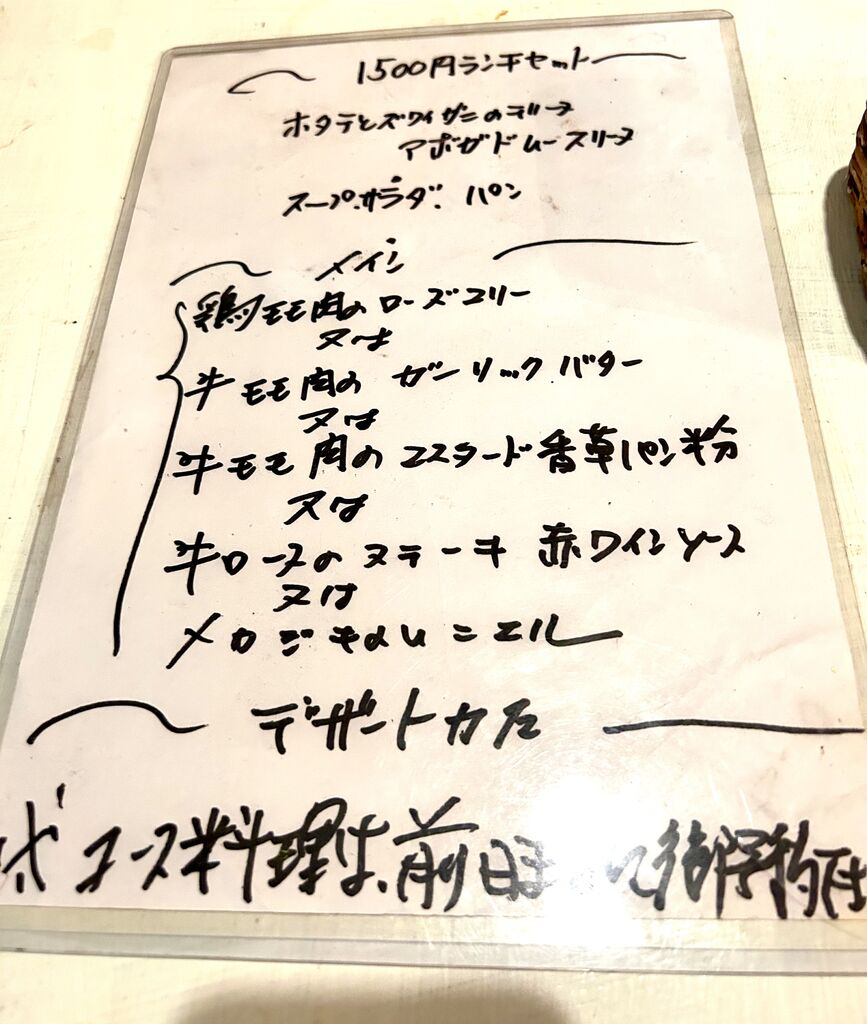 1500円ランチセット
ホタテとズワイガニのテリーヌ
アボガドムースリーヌ
スープ.サラダ. パン
メイン
鶏モモ肉のローズマリー
又は
牛モモ肉の ガーリックバター
又は
牛モモ肉のマスタード香草パン粉
又は
牛ロースのステーキ 赤ワインソース
又は
メカジキのムニエル
デザートカフェ
コース料理は、前日まで御予約